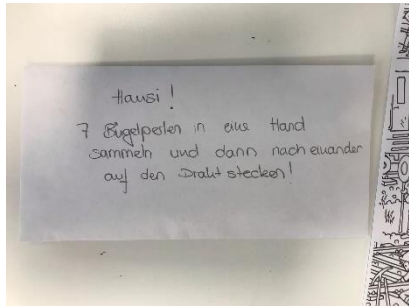 Hausi!
7 Bügelperlen in eine Hand
sammeln und dann nach einander
auf den Draht stecken!